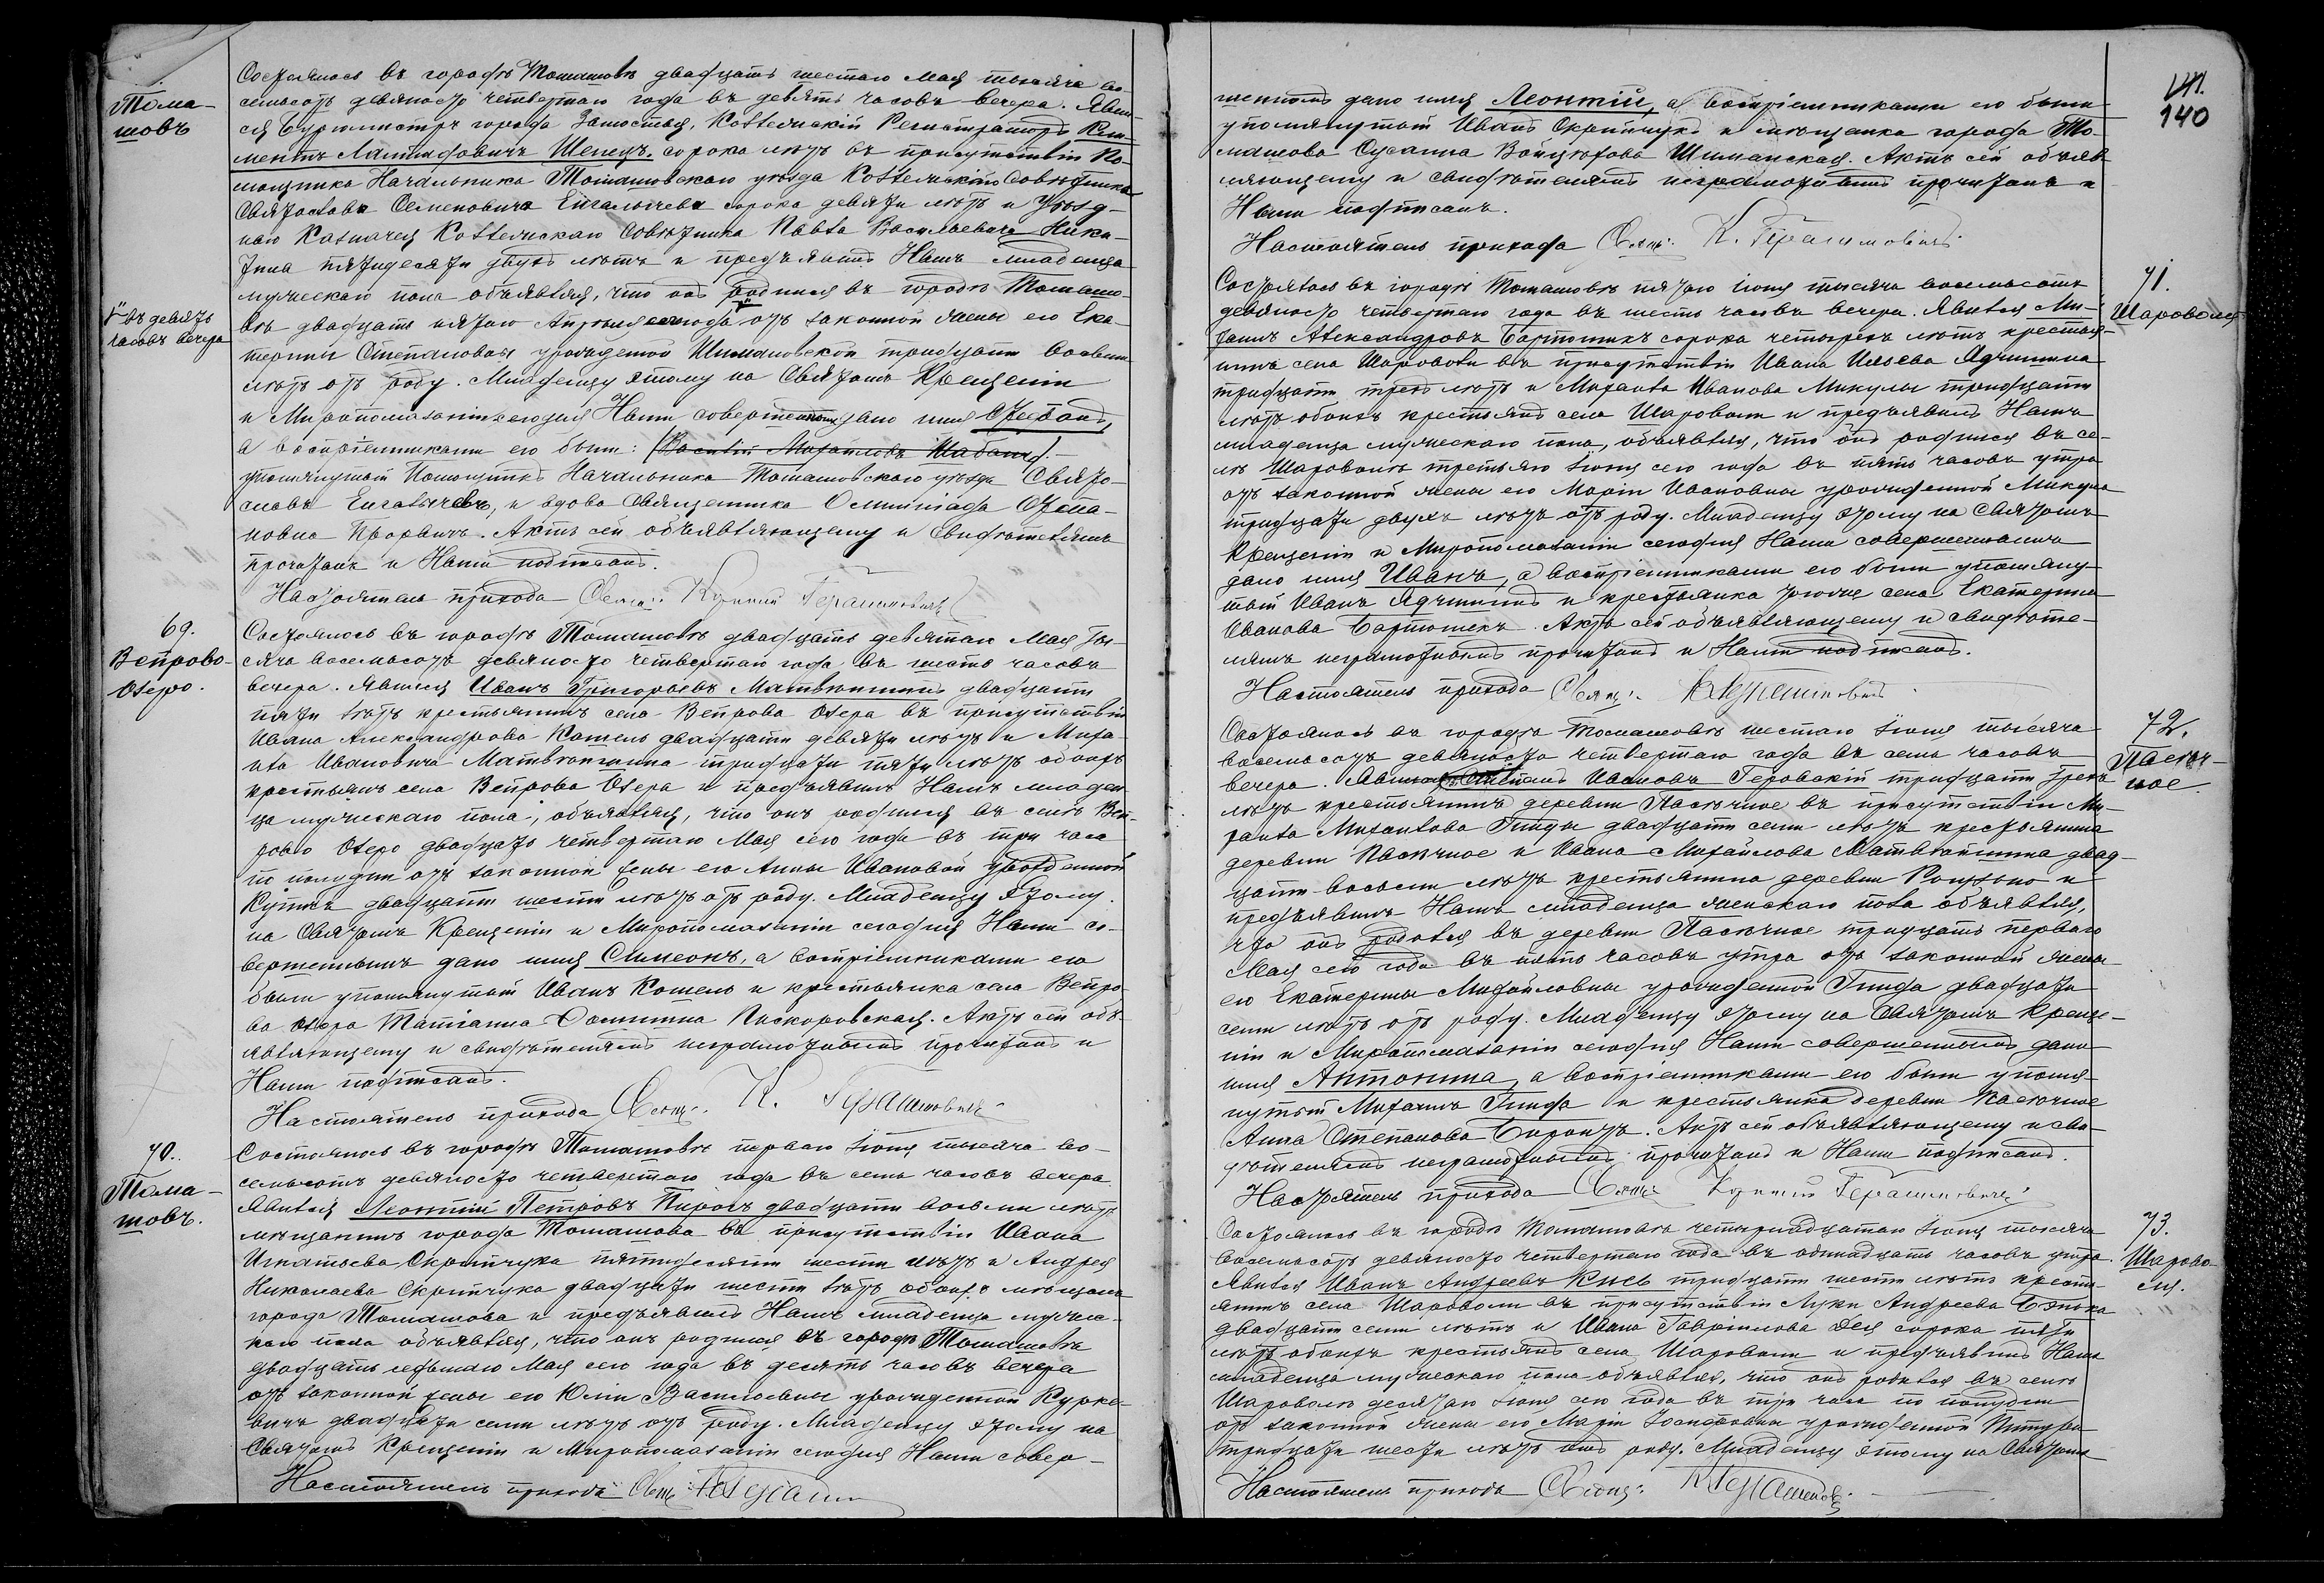 Тома-
шовъ
Состоялось въ городѣ Томашовѣ двадцать шестаго Мая тысяча во-
семьсотъ девяносто четвертаго года въ девять часовъ вечера. Явил-
ся Бургомистръ города Замостья, Коллежскій Регистраторъ Кли-
ментъ Шелецъ, сорока лѣтъ въ присутствіи По-
мощника Начальника Томашовскаго уѣзда Коллежскаго Совѣтника
Святослава Семеновича Енгалычева сорока девяти лѣтъ и Уѣзд-
наго Казначея Коллежскаго Совѣтника Павла Васильевича Ники-
тина пятидесяти двухъ лѣтъ и предъявилъ Намъ младенца
мужескаго пола объявляя, что онъ родился въ городѣ Томашо-
вѣ двадцать пятаго Апрѣля сего года отъ законной жены его Ека-
въ девять
часовъ вечера
терины Степановой урожденной Шимановской тридцати восьми
лѣтъ отъ роду. Младенцу этому на Святомъ Крещеніи
и Миропомазаніи сегодня Нами совершенномъ дано имя
а воспріемниками его были: (Василій Михайловъ Шабанъ).
упомянутый Помощникъ Начальника Томашовскаго уѣзда Свято-
славъ Енгалычевъ, и вдова Священника Олимпіада Степа-
новна. Актъ сей объявляющему и свидѣтелямъ
прочитанъ и Нами подписанъ.
Настоятель прихода Свящ: Герасимовичъ
69.
Вепрово-
Озеро.
Состоялось въ городѣ Томашовѣ двадцать девятаго Мая ты-
сяча восемьсотъ девяносто четвертаго года въ шесть часовъ
вечера. Явился Иванъ Григорьевъ Матвѣйшинъ двадцати
пяти лѣтъ крестьянинъ села Вепрова Озера въ присутствіи
Ивана Александрова Кошель двадцати девяти лѣтъ и Миха-
ила Ивановича Матвѣйшина тридцати пяти лѣтъ обоихъ
крестьянъ села Вепрова Озера и предъявилъ Намъ младен
ца мужескаго пола, объявляя, что онъ родился въ селѣ Веп-
рово Озеро двадцать четвертаго Мая сего года въ три часа
по полудни отъ законной жены его Анны Ивановой урожденной
двадцати шести лѣтъ отъ роду. Младенцу этому
на Святомъ Крещеніи и Миропомазаніи сегодня Нами со-
вершенномъ дано имя Симеонъ, а воспріемниками его
были упомянутый Иванъ Кошель и крестьянка села Вепро-
ва Озера Татіанна Пискоровская. Актъ сей объ-
являющему и свидѣтелямъ неграмотнымъ прочитанъ и
Нами подписанъ.
Настоятель прихода Свящ: К. Герасимовичъ
70.
Тома-
шовъ.
Состоялось въ городѣ Томашовѣ перваго Іюня тысяча во-
семьсотъ девяносто четвертаго года въ семь часовъ вечера
Явился Леонтій Петровъ Пирогъ двадцати восьми лѣтъ
мѣщанинъ города Томашова въ присутствіи Ивана
Игнатьева Скрипчука пятидесяти шести лѣтъ и Андрея
Николаева Скрипчука двадцати шести лѣтъ обоихъ мѣщанъ
города Томашова и предъявилъ Намъ младенца мужес-
каго пола объявляя, что онъ родился въ городѣ Томашовѣ
двадцать седьмаго Мая сего года въ десять часовъ вечера
отъ законной жены его Юліи Васильевны урожденной Курке-
вичъ двадцати семи лѣтъ отъ роду. Младенцу этому на
Святомъ Крещеніи и Миропомазаніи сегодня Нами совер-
Настоятель прихода Свящ:
141.
140
шенномъ дано имя Леонтій, а воспріемниками его были
упомянутый Иванъ Скрипчукъ и мѣщанка города То-
машова Сусанна Войцѣхова Шиманская. Актъ сей объяв
ляющему и свидѣтелямъ неграмотнымъ прочитанъ и
Нами подписанъ.
Настоятель прихода Свящ: К. Герасимовичъ
71.
Шароволя
Состоялось въ городѣ Томашовѣ пятаго Іюня тысяча восемьсотъ
девяносто четвертаго года въ шесть часовъ вечера. Явился Ми-
хаилъ Александровъ Бартошикъ сорока четырехъ лѣтъ крестья-
нинъ села Шароволи въ присутствіи Ивана Ильева Ядчишина
тридцати трехъ лѣтъ и Михаила Иванова Микулы тридцати
лѣтъ обоихъ крестьянъ села Шароволи и предъявилъ Намъ
младенца мужескаго пола, объявляя, что онъ родился въ се-
лѣ Шароволѣ третьяго Іюня сего года въ пять часовъ утра
отъ законной жены его Маріи Ивановны урожденной Микула
тридцати двухъ лѣтъ отъ роду. Младенцу этому на Святомъ
Крещеніи и Миропомазаніи сегодня Нами совершенномъ
дано имя Иванъ, а воспріемниками его были упомяну-
тый Иванъ Ядчишинъ и крестьянка тогоже села Екатерина
Иванова Бартошекъ. Актъ сей объявляющему и свидѣте-
лямъ неграмотнымъ прочитанъ и Нами подписанъ.
Настоятель прихода Свящ: К Герасимовичъ
72.
Пасѣч-
ное.
Состоялось въ городѣ Томашовѣ шестаго Іюня тысяча
восемьсотъ девяносто четвертаго года въ семь часовъ
вечера. Явился Степанъ Ивановъ Геровскій тридцати трехъ
лѣтъ крестьянинъ деревни Пасѣчное въ присутствіи Ми-
хаила Михаилова Гнида двадцати семи лѣтъ крестьянина
деревни Пасѣчное и Ивана Михайлова Матвѣйшина двад-
цати восьми лѣтъ крестьянина деревни и
предъявилъ Намъ младенца женскаго пола объявляя,
что онъ родился въ деревни Пасѣчное тридцать перваго
Мая сего года въ пять часовъ утра отъ законной жены
его Екатерины Михайловны урожденной Гнида двадцати
семи лѣтъ отъ роду. Младенцу этому на Святомъ Креще-
ніи и Миропомазаніи сегодня Нами совершенномъ дано
имя Антонина, а воспріемниками его были упомя-
нутый Михаилъ Гнида и крестьянка деревни Пасѣчное
Анна Степанова. Актъ сей объявляющему и сви-
дѣтелямъ неграмотнымъ прочитанъ и Нами подписанъ.
Настоятель прихода Свящ: Герасимовичъ
73.
Шарово-
ля.
Состоялось въ городѣ Томашовѣ четырнадцатаго Іюня тысяча
восемьсотъ девяносто четвертаго года въ одинадцать часовъ утра.
Явился Иванъ Андреевъ Кись тридцати шести лѣтъ кресть-
янинъ села Шароволи въ присутствіи Луки Андреева
двадцати семи лѣтъ и Ивана Гавріилова сорока пяти
лѣтъ обоихъ крестьянъ села Шароволи и предъявилъ Намъ
младенца мужескаго пола объявляя, что онъ родился въ селѣ
Шароволѣ десятаго Іюня сего года въ три часа по полудни
отъ законной жены его Маріи Іосифовны урожденной
тридцати шести лѣтъ отъ роду. Младенцу этому на Святомъ
Настоятель прихода Свящ: К Герасимовъ